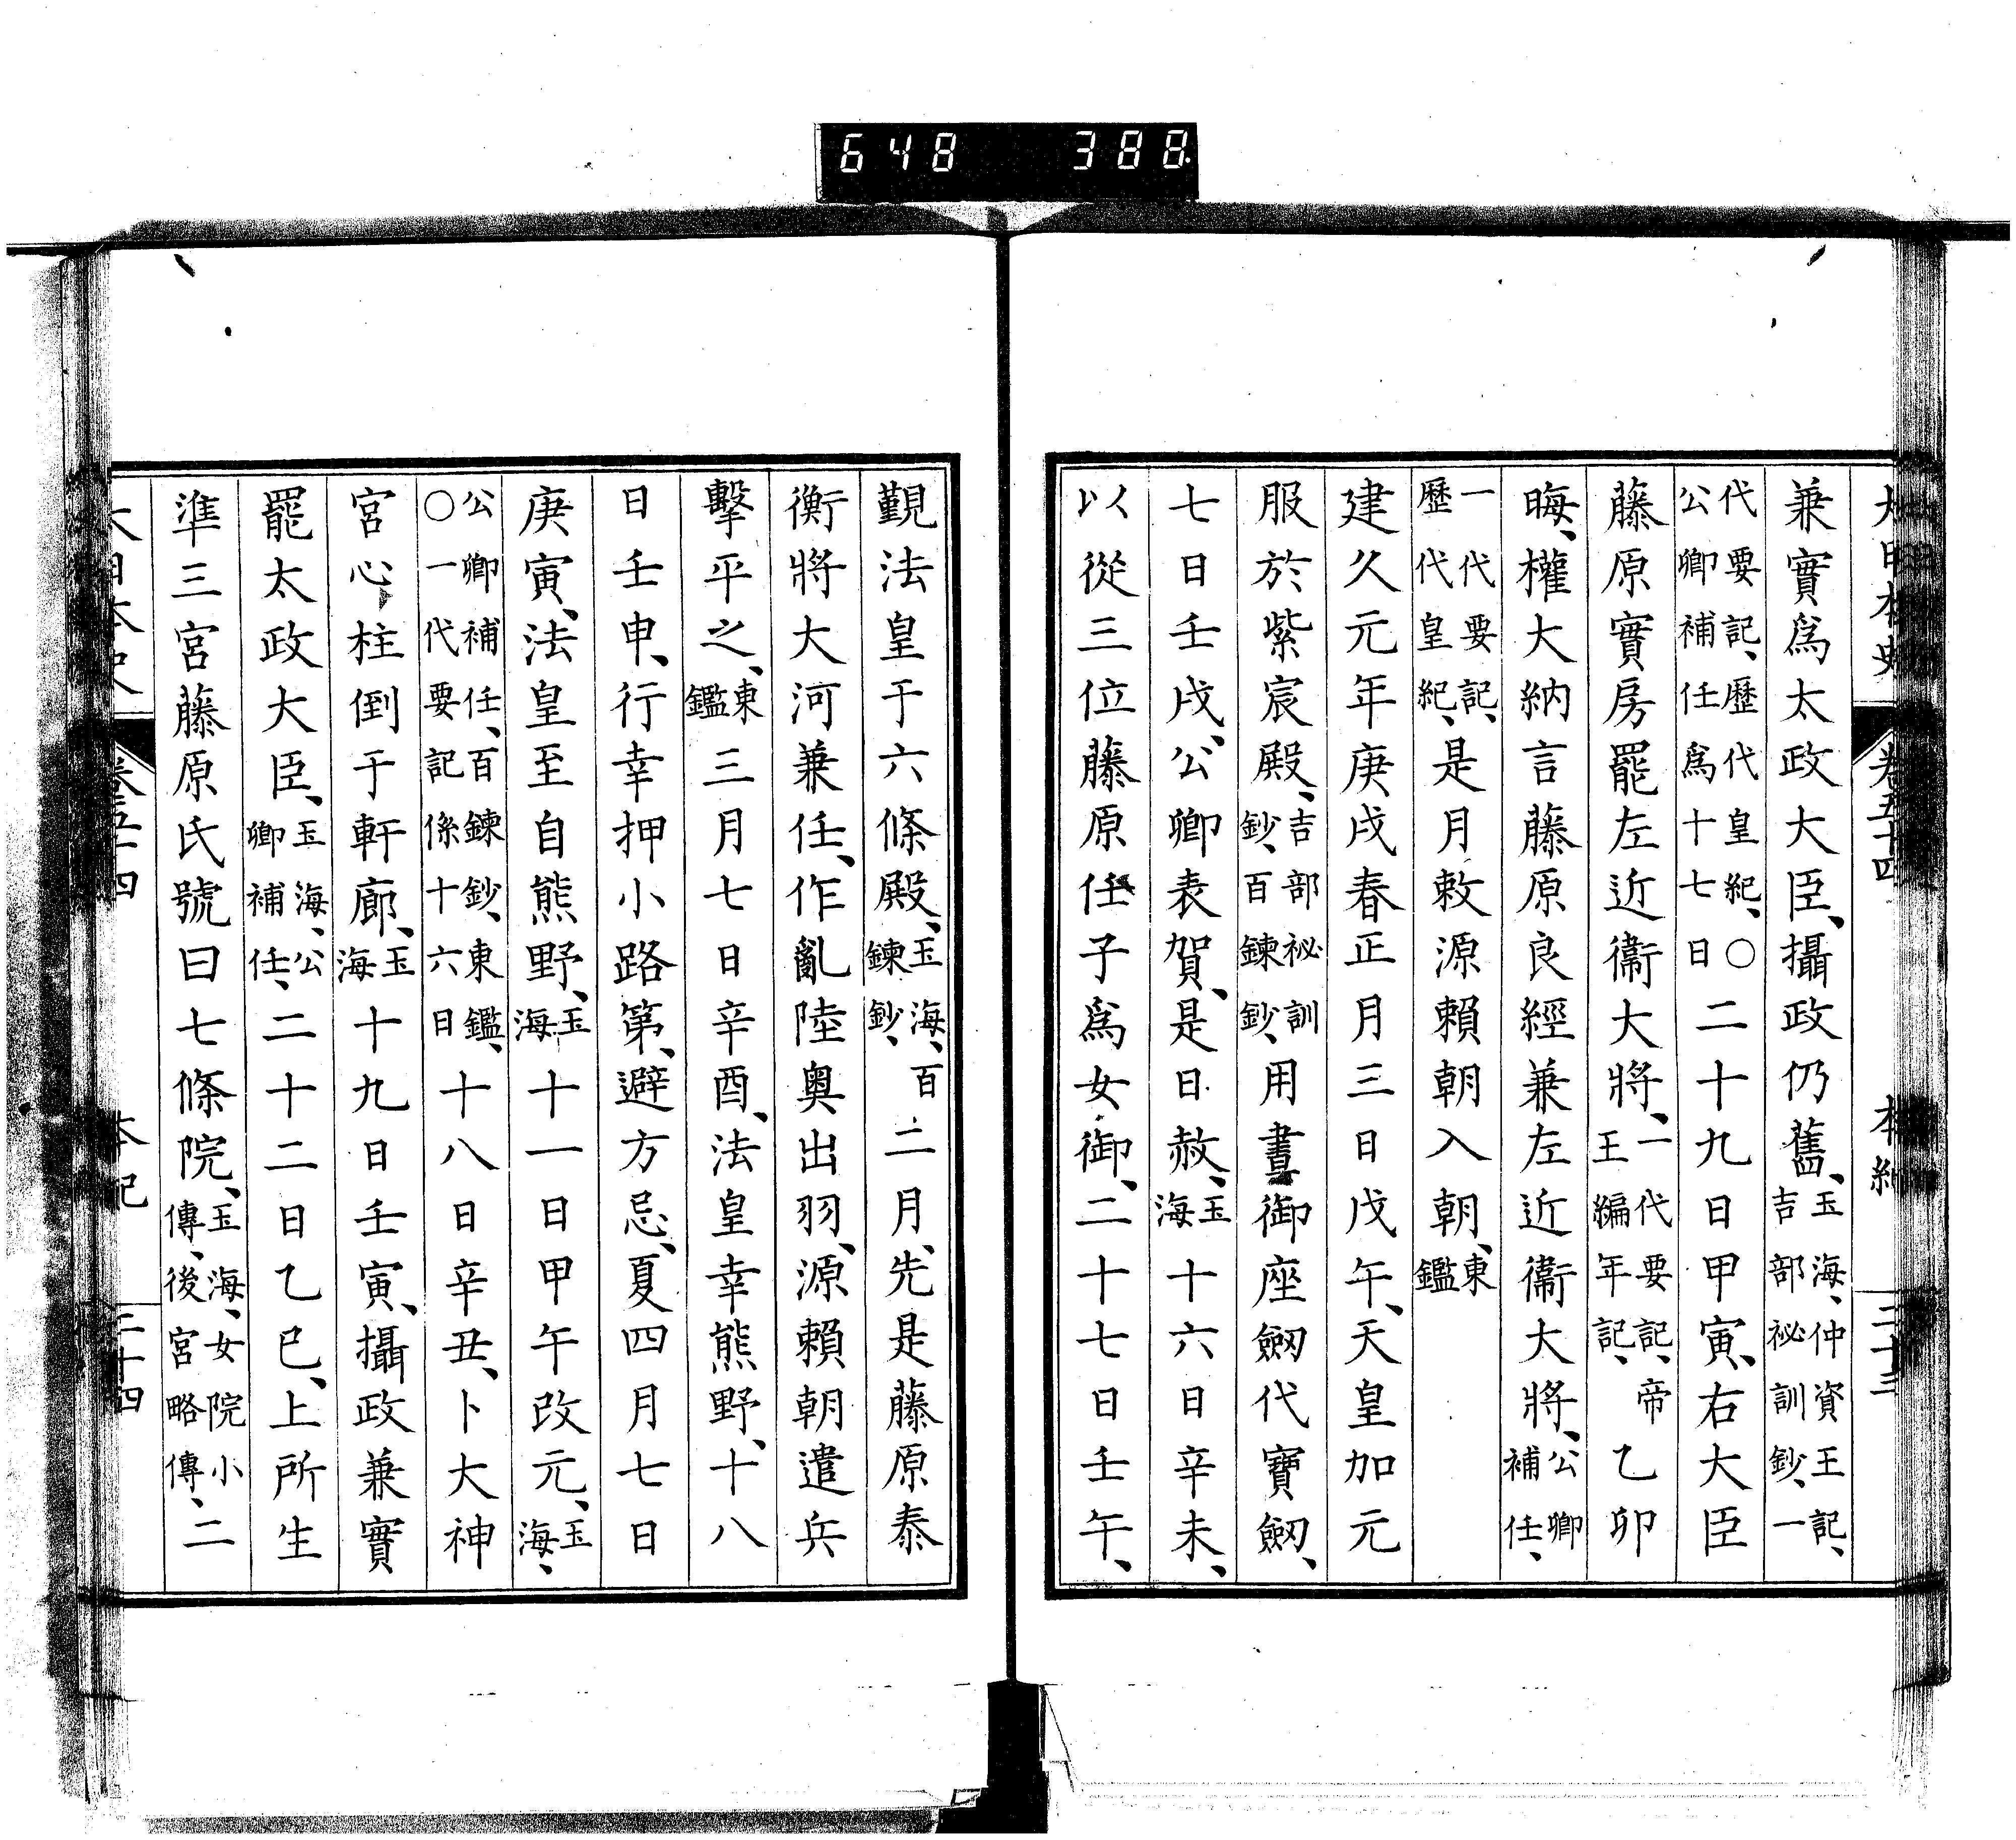 648 388
大日本史 卷五十四 本紀 三十三
兼實爲太政大臣、攝政仍舊、玉海、仲資王記、吉部祕訓鈔、一
代要記、歷代皇紀、○公卿補任爲十七日二十九日甲寅、右大臣
藤原實房罷左近衞大將、一代要記、帝王編年記、乙卯
晦、權大納言藤原良經兼左近衞大將、公卿補任、
一代要記、歷代皇紀、是月敕源賴朝入朝、東鑑
建久元年庚戌春正月三日戊午、天皇加元
服於紫宸殿、吉部祕訓鈔、百鍊鈔、用晝御座劔代寶劔、
七日壬戌、公卿表賀、是日赦、玉海十六日辛未、
以從三位藤原任子爲女御、二十七日壬午、
覲法皇于六條殿、玉海、百鍊鈔、二月、先是藤原泰
衡將大河兼任、作亂陸奥出羽、源賴朝遣兵
擊平之、東鑑三月七日辛酉、法皇幸熊野、十八
日壬申、行幸押小路第、避方忌、夏四月七日
庚寅、法皇至自熊野、玉海十一日甲午改元、玉海、
公卿補任、百鍊鈔、東鑑、○一代要記係十六日十八日辛丑、卜大神
宮心柱倒于軒廊、玉海十九日壬寅、攝政兼實
罷太政大臣、玉海、公卿補任、二十二日乙巳、上所生
準三宮藤原氏號曰七條院、玉海、女院小傳、後宮略傳、二
大日本史 卷五十四 本紀 三十四